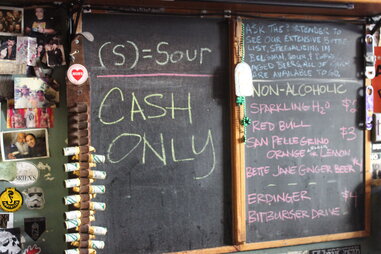 (S)=Sour
CASH
ONLY
ASK THE BARTENDER TO
SEE OUR EXTENSIVE BOTTLE
LIST, SPECIALIZING IN
BELGIAN, SOUR &
AGED BEERS. ALL OF
ARE AVAILABLE TO GO.
NON-ALCOHOLIC
SPARKLING H2O
RED BULL
SAN PELLEGRINO $3
ORANGE or LEMON
BETTE JANE GINGER BEER
ERDINGER $4
BITBURGER DRIVE